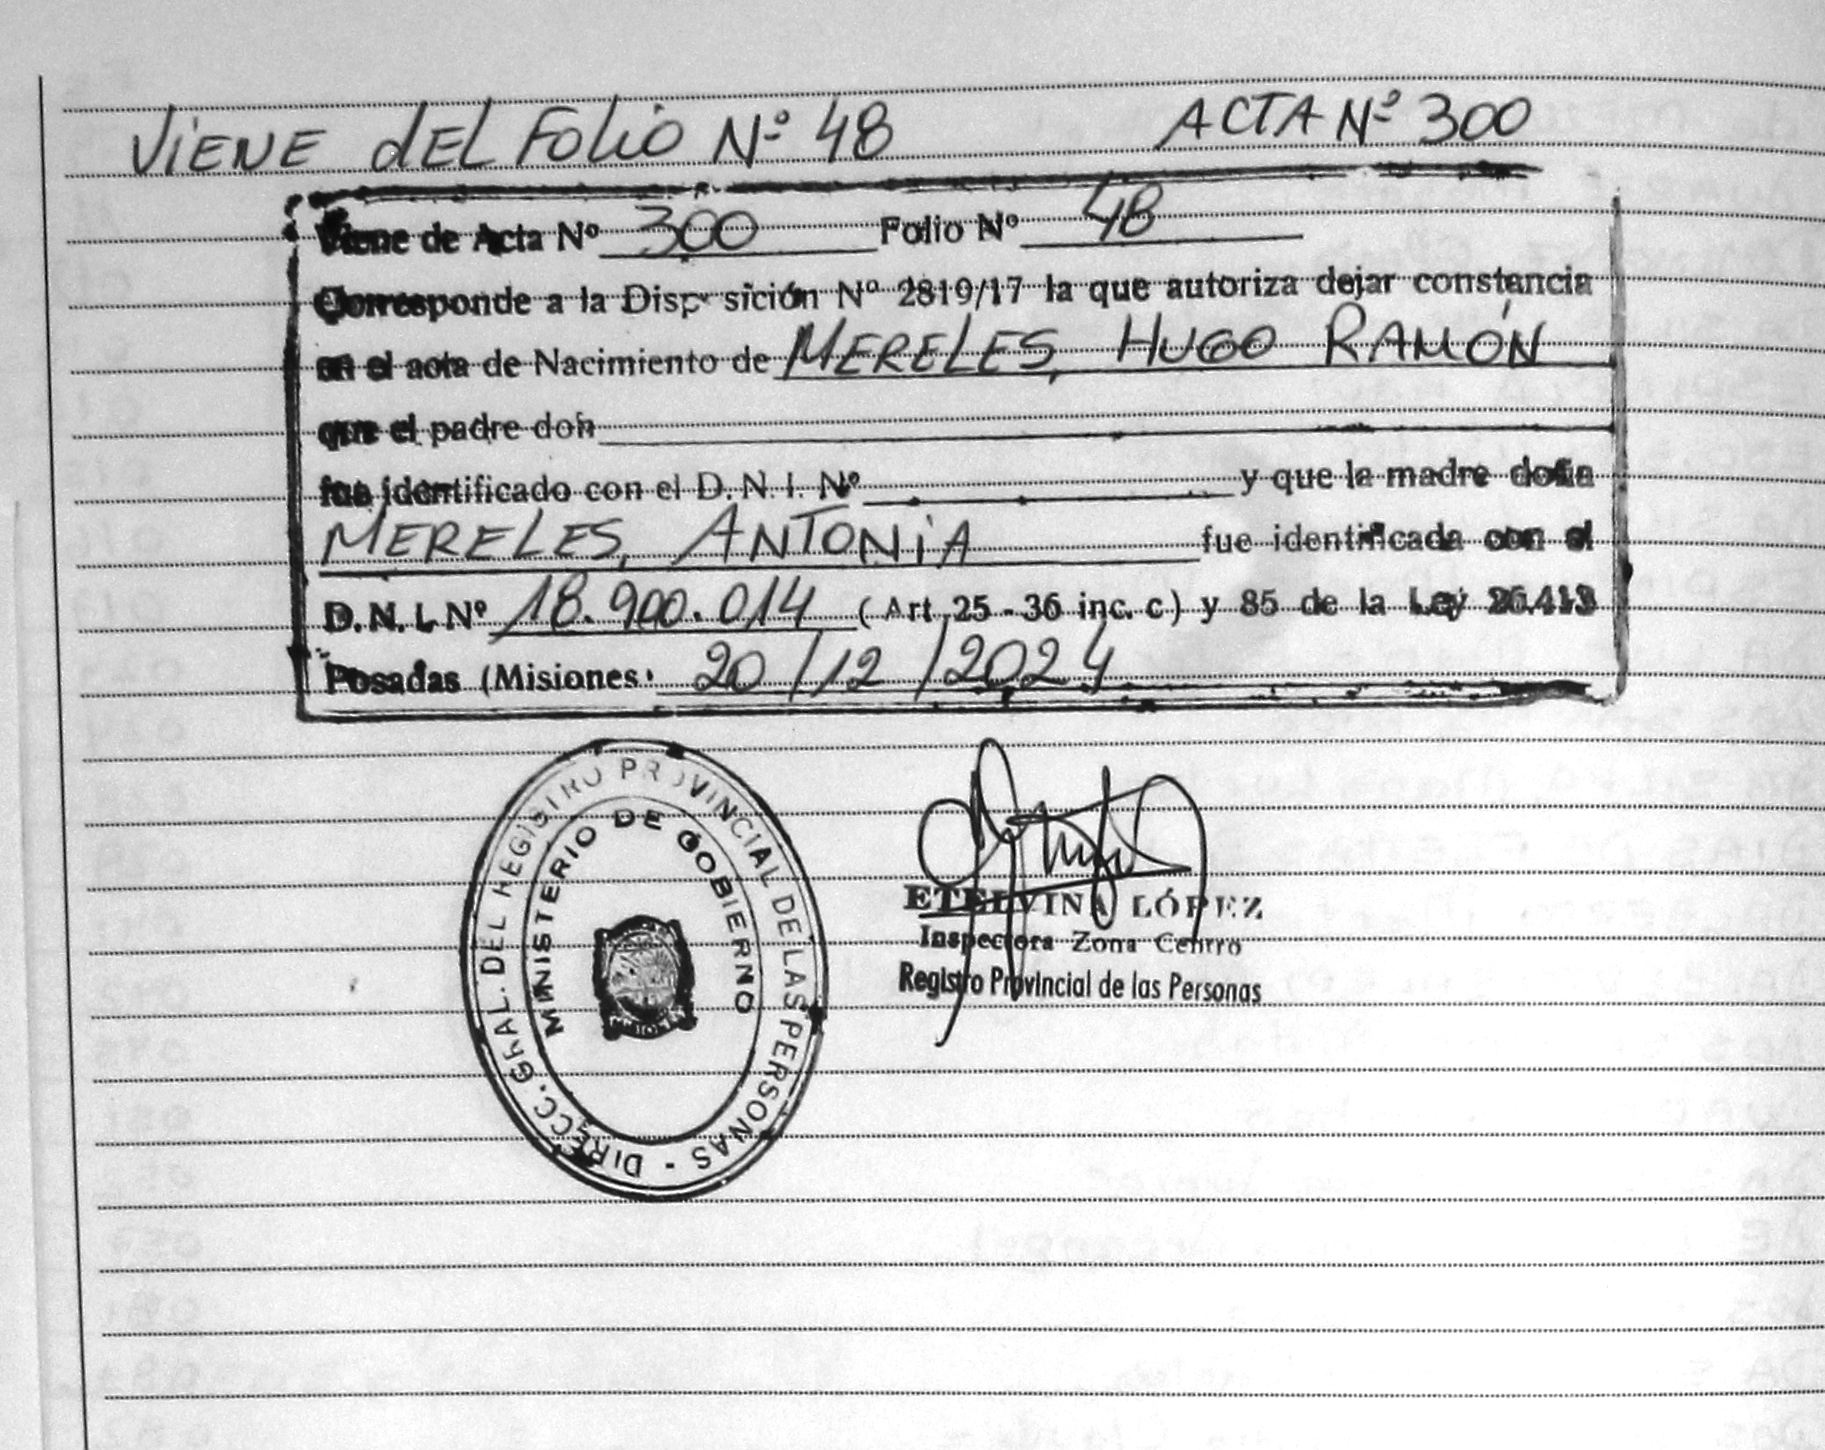 ViENE dEL FOLiO Nº 48 ACTA Nº 300
Viene de Acta Nº 300 Folio Nº 48
Corresponde a la Disp sición Nº 2819/17 la que autoriza dejar constancia
en el acta de Nacimiento de MERELES, HUGO RAMÓN
que el padre don
fue identificado con el D. N. I. Nº y que la madre doña
MERELES, ANTONiA fue identificada con el
D. N. I. Nº 18.900.014 ( Art. 25 - 36 inc. c ) y 85 de la Ley 26.413
Posadas (Misiones 20/12/2024
DIRECC. GRAL. DEL REGISTRO PROVINCIAL DE LAS PERSONAS -
MINISTERIO DE GOBIERNO
ETELVINA LÓPEZ
Inspectora Zona Centro
Registro Provincial de las Personas